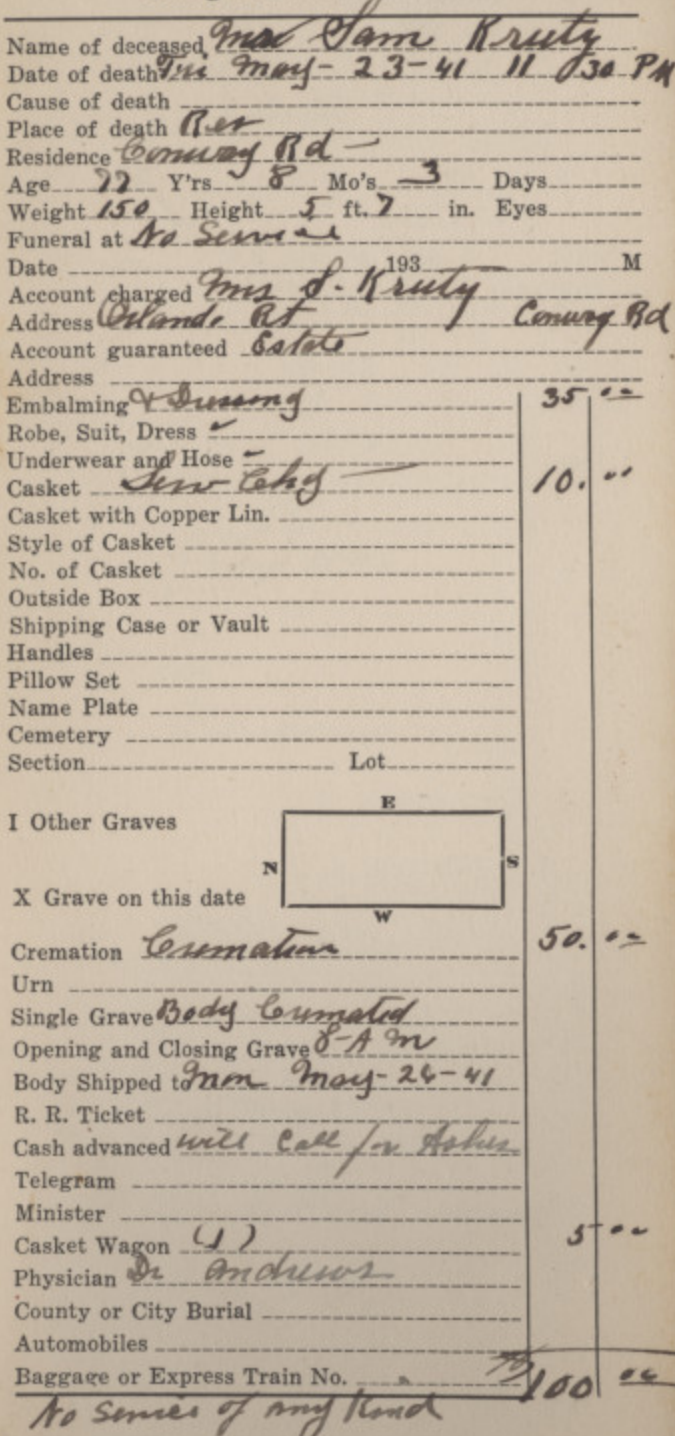 Name of deceased Mr Sam Kruty
Date of death Fri May - 23-41 11 30 PM
Cause of death
Place of death Res
Residence Conway Rd -
Age 77 Y'rs 8 Mo's 3 Days
Weight 150 Height 5 ft. 7 in. Eyes
Funeral at No Service
Date 193 M
Account charged Mrs S. Kruty
Address Orlando Rt Conway Rd
Account guaranteed Estate
Address
Embalming & Dressing 35 00
Robe, Suit, Dress
Underwear and Hose
Casket Serv Chg 10. 00
Casket with Copper Lin.
Style of Casket
No. of Casket
Outside Box
Shipping Case or Vault
Handles
Pillow Set
Name Plate
Cemetery
Section Lot
E
I Other Graves
N S
X Grave on this date
W
Cremation Cremation 50. 00
Urn
Single Grave Body Cremated
Opening and Closing Grave 8-A M
Body Shipped to Mon May - 26-41
R. R. Ticket
Cash advanced will call for Ashes
Telegram
Minister
Casket Wagon 5 00
Physician Dr Andrews
County or City Burial
Automobiles
Baggage or Express Train No. 100 00
No service of any kind